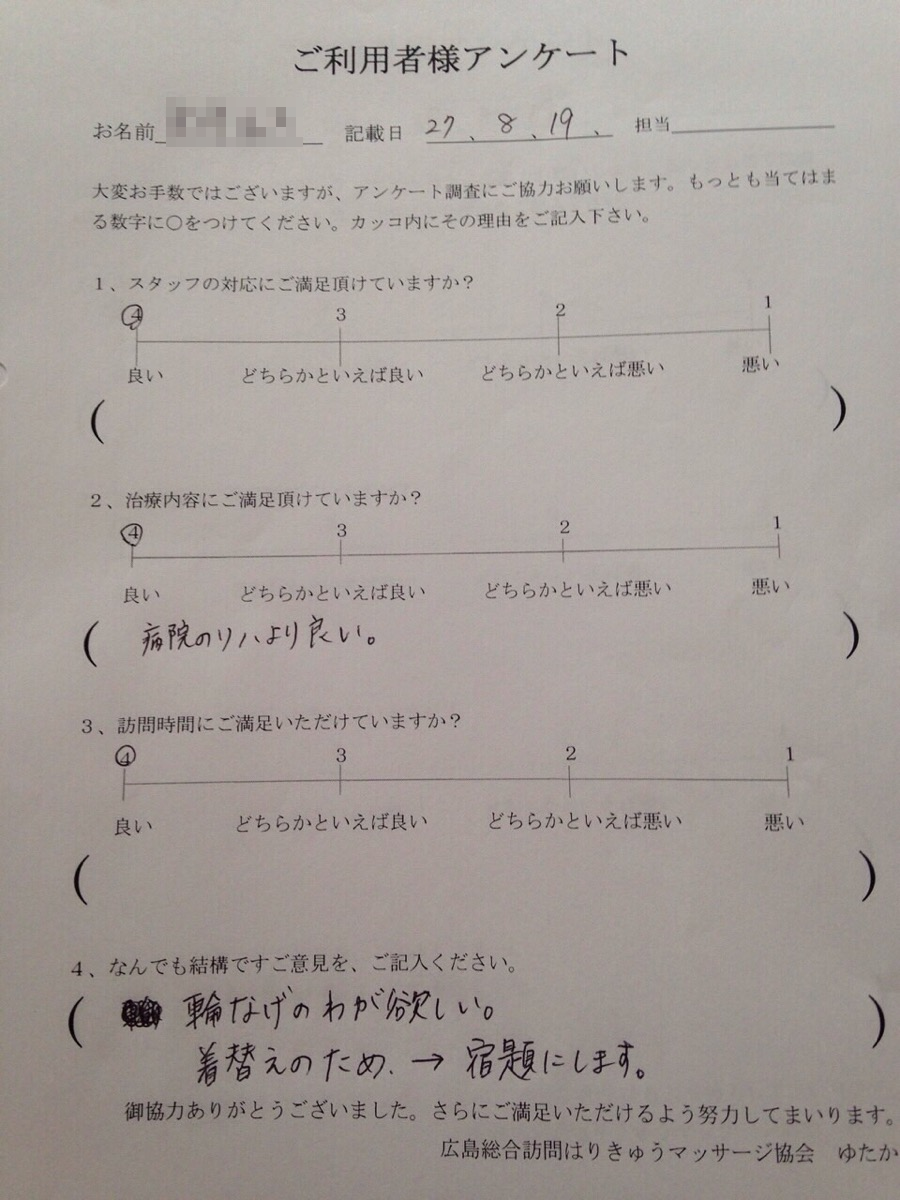 ご利用者様アンケート
お名前 記載日 27、8、19、 担当
大変お手数ではございますが、アンケート調査にご協力お願いします。もっとも当てはま
る数字に○をつけてください。カッコ内にその理由をご記入下さい。
1、スタッフの対応にご満足頂けていますか？
4 3 2 1
良い どちらかといえば良い どちらかといえば悪い 悪い
( )
2、治療内容にご満足頂けていますか？
4 3 2 1
良い どちらかといえば良い どちらかといえば悪い 悪い
( 病院のリハより良い。 )
3、訪問時間にご満足いただけていますか？
4 3 2 1
良い どちらかといえば良い どちらかといえば悪い 悪い
( )
4、なんでも結構ですご意見を、ご記入ください。
( 輪なげのわが欲しい。 )
着替えのため、→ 宿題にします。
御協力ありがとうございました。さらにご満足いただけるよう努力してまいります。
広島総合訪問はりきゅうマッサージ協会 ゆたか